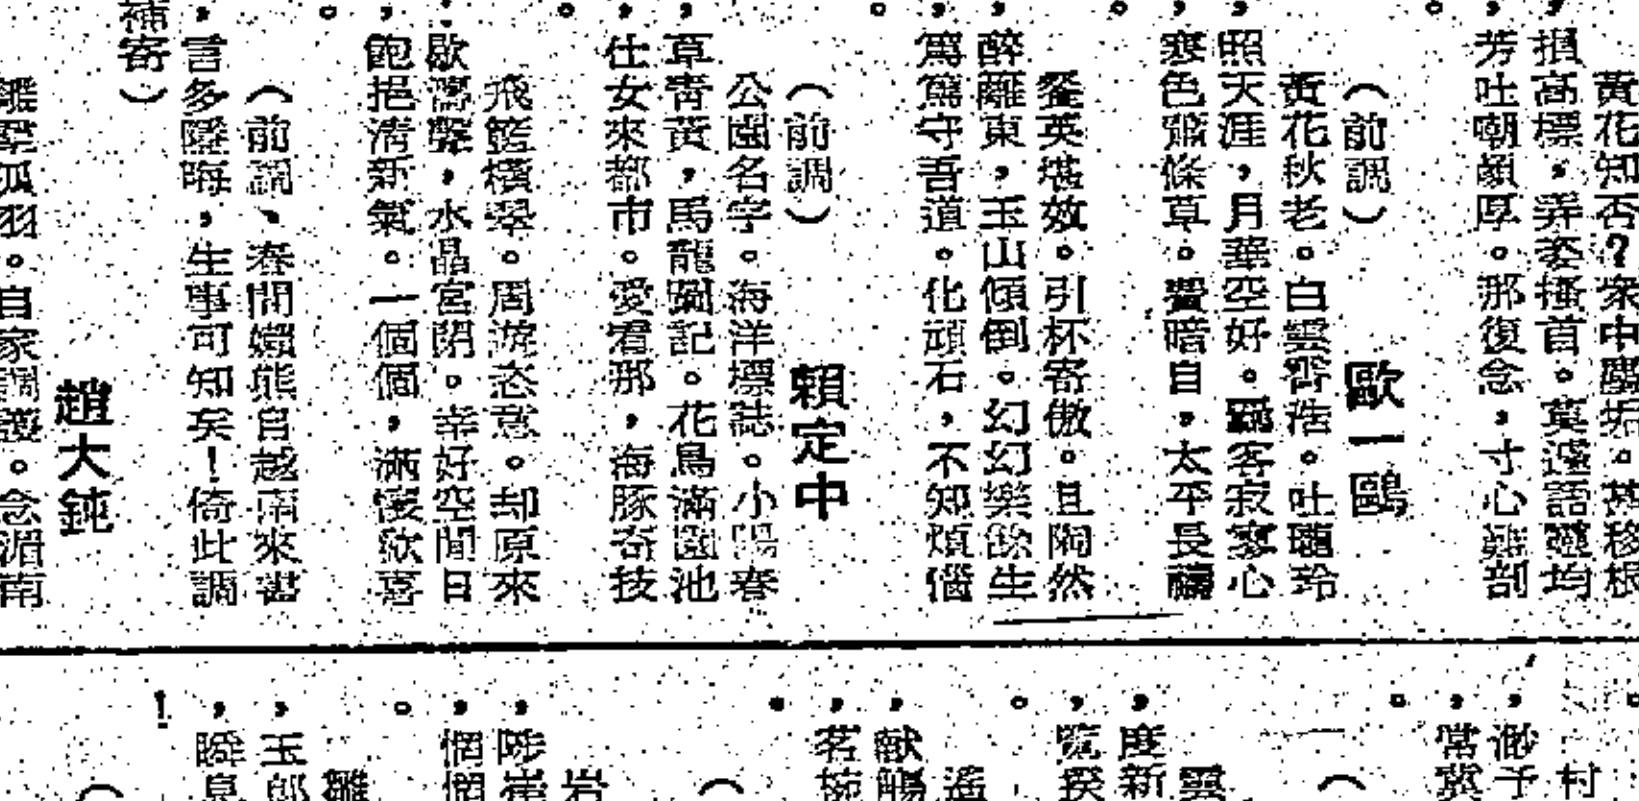 黃花知否?衆中塵垢。莫移根
,損高標,弄姿搔首。莫遣語靈均
,芳吐嘲顏厚。那復念,寸心難剖
。
(前調) 歐一鷗
黃花秋老。白雲香浩。吐瓏玲
,照天涯,月華空好。羇客寂寥心
,寒色蕭條草。費暗自,太平長禱
。
餐英堪效。引杯寄傲。且陶然
,醉籬東,玉山傾倒。幻幻樂餘生
,篤篤守吾道。化頑石,不知煩惱
。
(前調) 賴定中
公園名字。海洋標誌。小陽春
,草靑黃,馬龍闐記。花鳥滿園池
,仕女來都市。愛看那,海豚奇技
。
飛籃積翠。周遊恣意。却原來
,歇濤聲,水晶宮閉。幸好空閒日
,飽挹淸新氣。一個個,滿懷欣喜
。
(前調、春間嬾熊自越南來書
,言多隱晦,生事可知矣!倚此調
補寄) 趙大鈍
離羣孤羽。自家調護。念湄南
村
,渺予
,常冀
。
(
雲
,度新
,流揆
。
遙
,獻觴
,茗椀
。
(
岩
,陟崔
,惘惘
。
雛
,玉郎
,瞬息
!
(